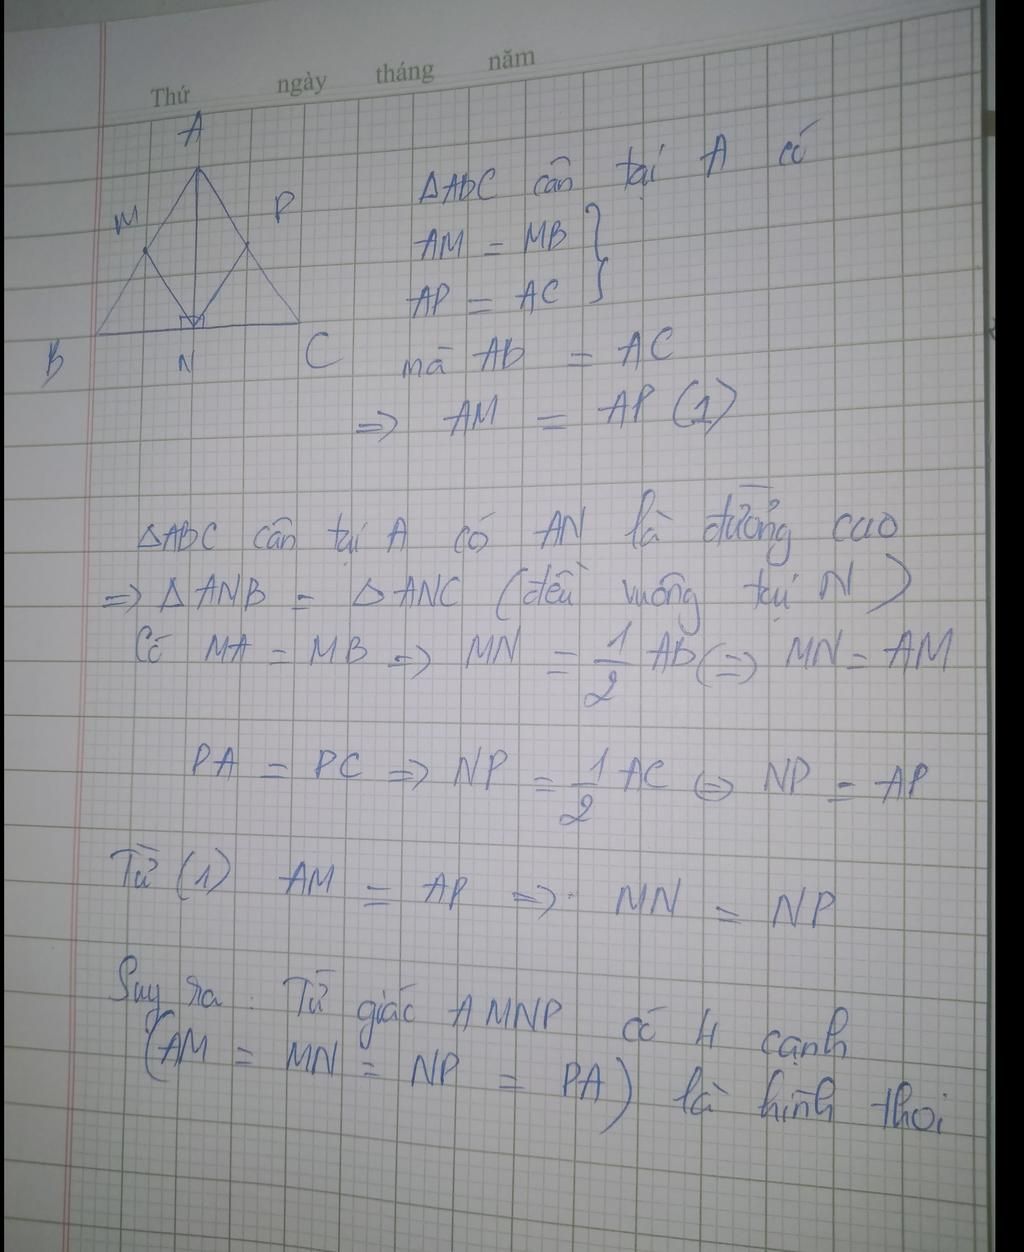 Thứ ngày tháng năm
A
M P
B N C
ΔABC cân tại A có
AM = MB }
AP = AC }
mà AB = AC
=> AM = AP (1)
ΔABC cân tại A có AN là đường cao
=> Δ ANB = Δ ANC (đều vuông tại N)
Có MA = MB => MN = 1/2 AB (=> MN = AM
PA = PC => NP = 1/2 AC <=> NP = AP
Từ (1) AM = AP => MN = NP
Suy ra : Tứ giác AMNP có 4 cạnh
(AM = MN = NP = PA) là hình thoi